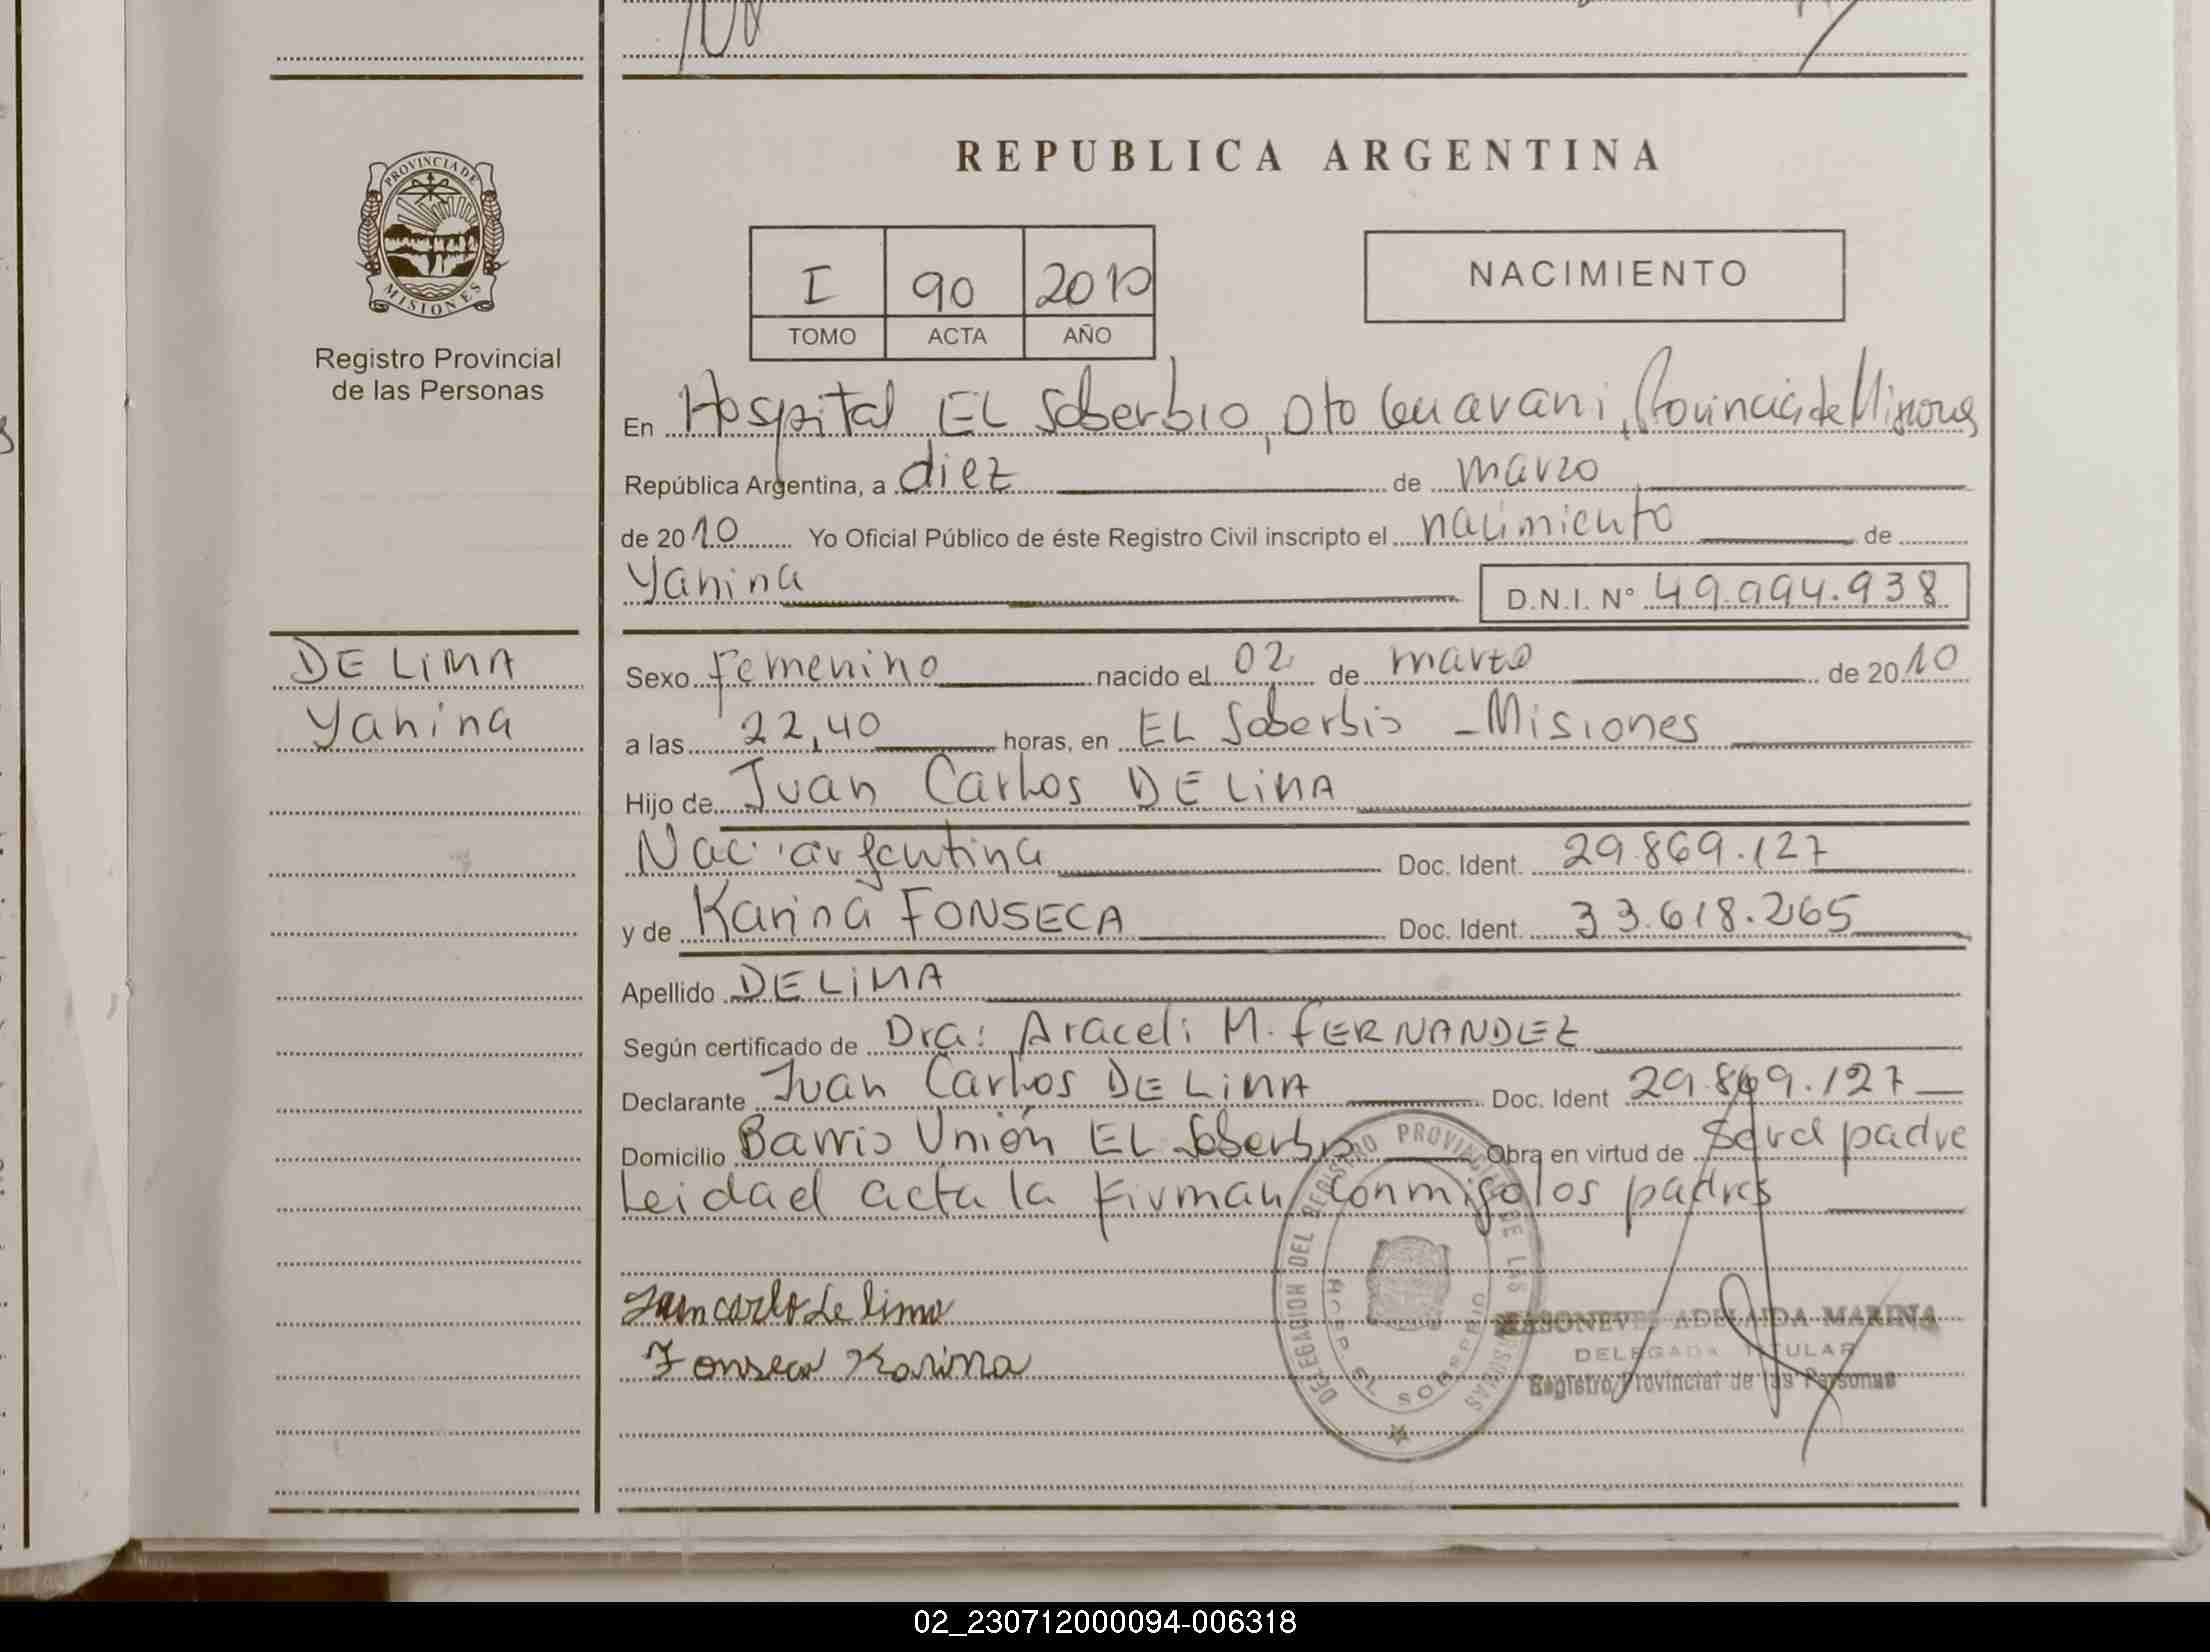 REPUBLICA ARGENTINA
PROVINCIA DE
MISIONES
Registro Provincial
de las Personas
I 90 2010
TOMO ACTA AÑO
NACIMIENTO
En Hospital EL Soberbio, Dto Guarani, Provincia de Misiones
República Argentina, a diez de marzo
de 2010 Yo Oficial Público de éste Registro Civil inscripto el nacimiento de
Yanina D.N.I. N° 49.994.938
DE LiMA
Yanina
Sexo femenino nacido el 02 de marzo de 2010
a las 22,40 horas, en EL Soberbio - Misiones
Hijo de Juan Carlos DE LiMA
Nac. argentina Doc. Ident. 29.869.127
y de Karina FONSECA Doc. Ident. 33.618.265
Apellido DE LiMA
Según certificado de Dra: Araceli M. FERNANDEZ
Declarante Juan Carlos DE LiMA Doc. Ident 29.869.127
Domicilio Barrio Unión EL Soberbio Obra en virtud de ser el padre
Leida el acta la firman conmigo los padres
Juan carlos de lima
Fonseca Karina
DELEGACION DEL REGISTRO PROVINCIAL DE LAS PERSONAS
HOSP EL SOBERBIO
ADELAIDA MARINA
DELEGADA TITULAR
Registro Provincial de las Personas
02_230712000094-006318